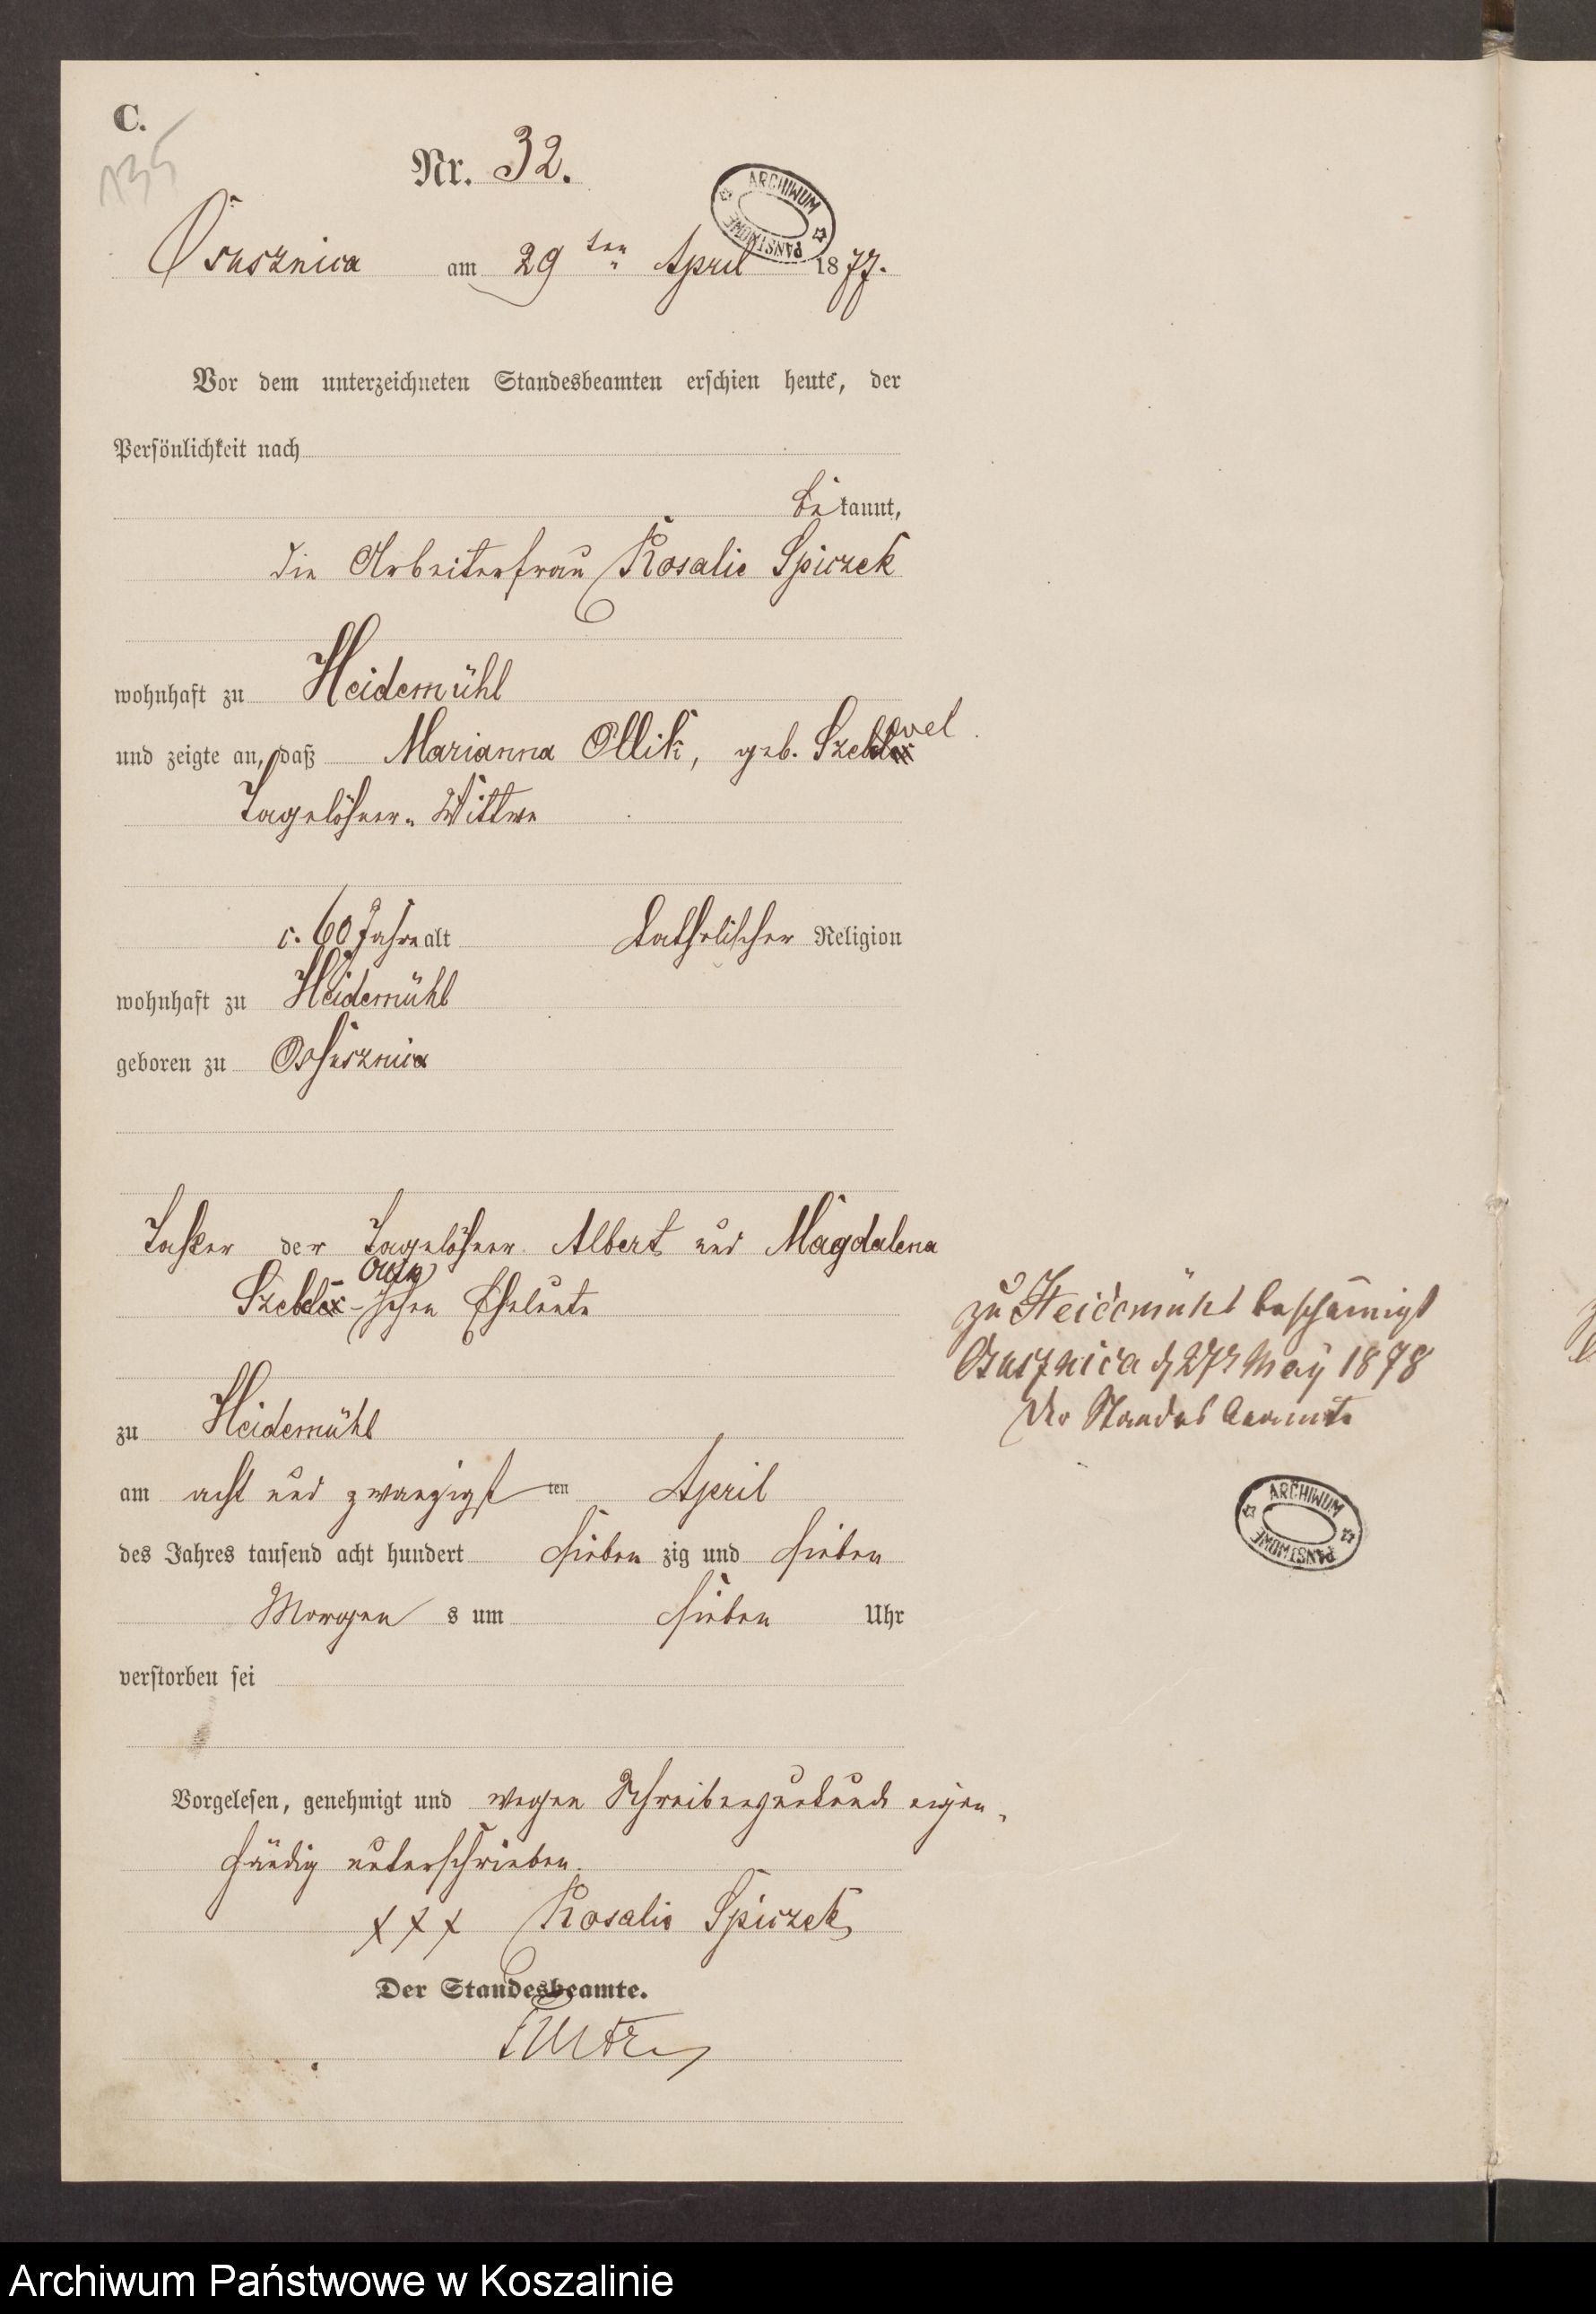 C.
135
Nr. 32.
ARCHIWUM PAŃSTWOWE
Osusznica am 29 ten April 1877.
Vor dem unterzeichneten Standesbeamten erschien heute, der
Persönlichkeit nach
bekannt,
die Arbeiterfrau Rosalie Spiczek
wohnhaft zu Heidemühl
und zeigte an, daß Marianna Ollik, geb.
Tagelöhner-Wittwe
c. 60 Jahre alt katholischer Religion
wohnhaft zu Heidemühl
geboren zu Ossusznica
Tochter der Tagelöhner Albert und Magdalena
schen Eheleute
zu Heidemühl
am acht und zwanzigst ten April
des Jahres tausend acht hundert sieben zig und sieben
Morgen s um sieben Uhr
verstorben sei
Vorgelesen, genehmigt und wegen Schreibensunkunde eigen-
händig unterschrieben.
xxx Rosalie Spiczek
Der Standesbeamte.
zu Heidemühl bescheinigt
Osusznica d 27t May 1878
Der Standes beamte
ARCHIWUM PAŃSTWOWE
Archiwum Państwowe w Koszalinie